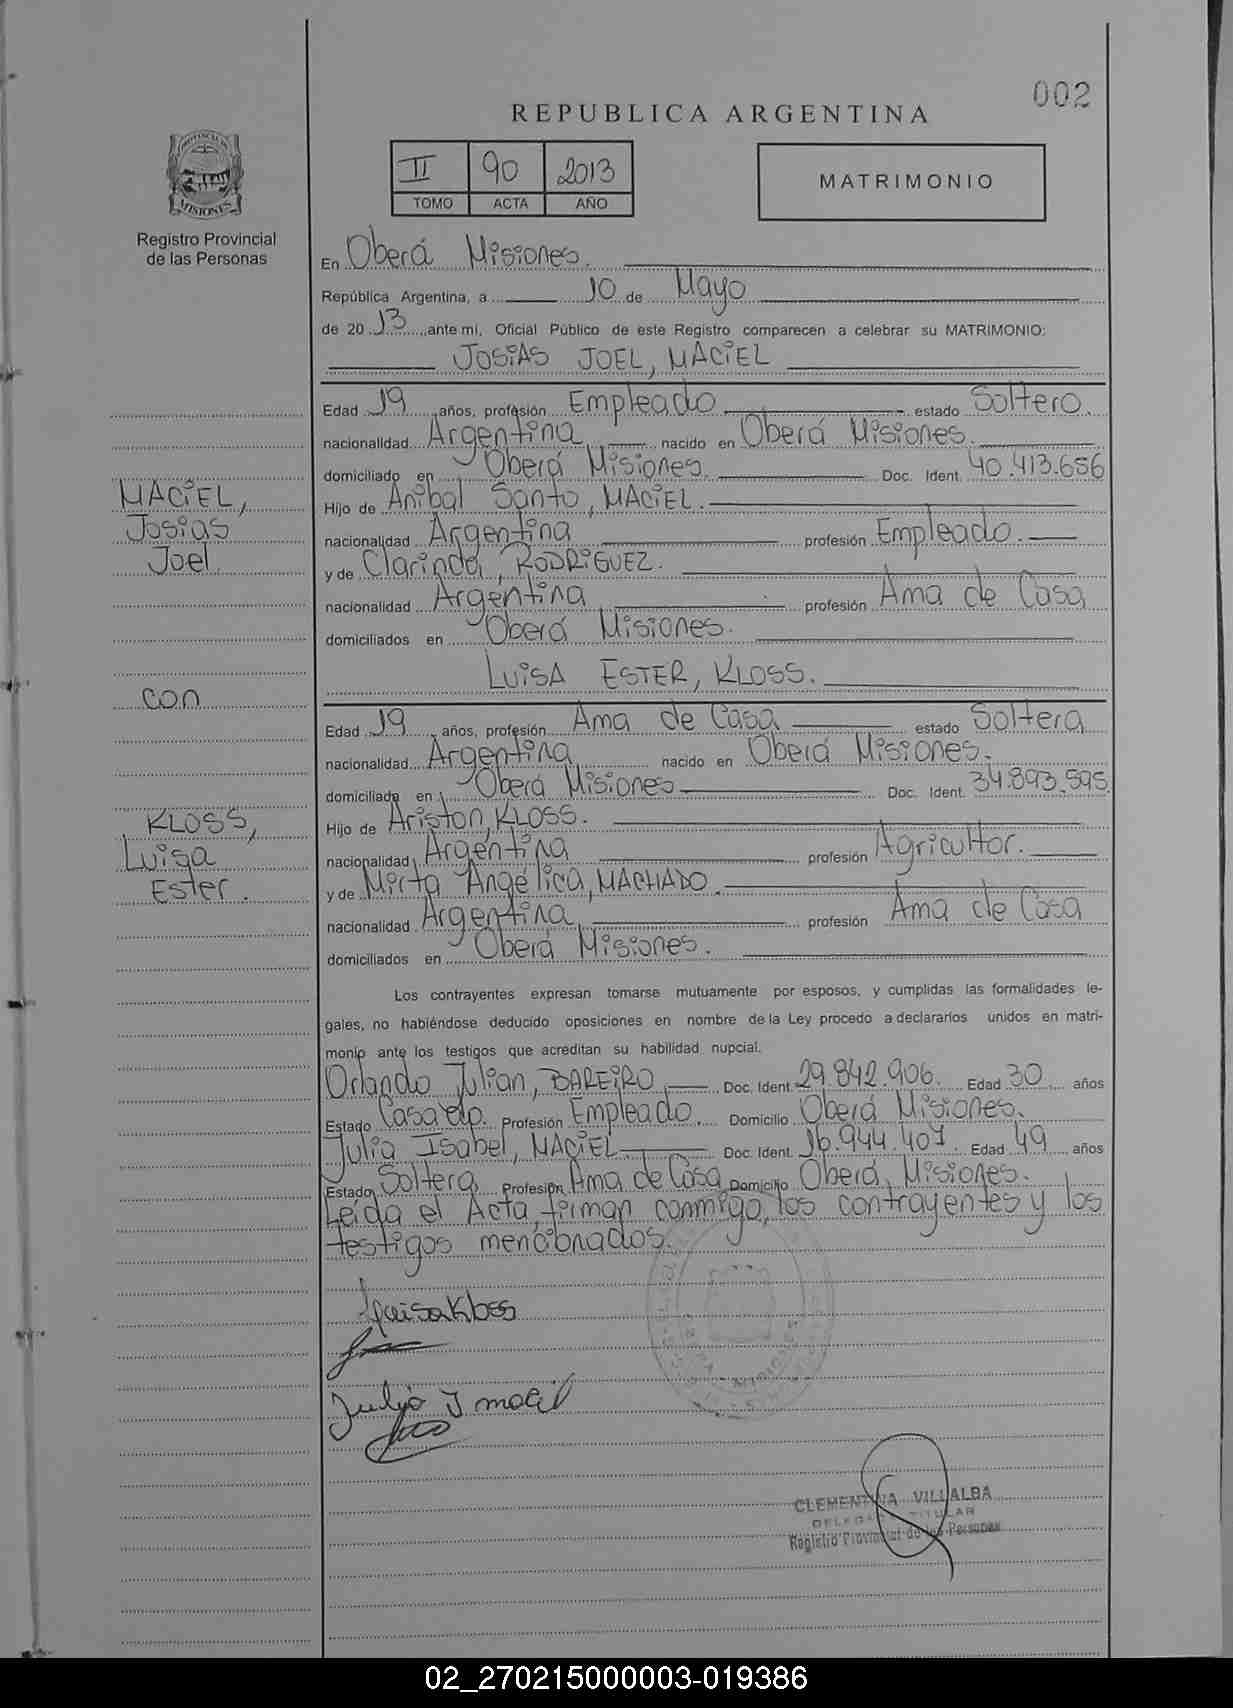 002
REPUBLICA ARGENTINA
PROVINCIA DE
MISIONES
Registro Provincial
de las Personas
II 90 2013
TOMO ACTA AÑO
MATRIMONIO
En Oberá Misiones.
República Argentina, a 10 de Mayo
de 2013 ante mi, Oficial Público de este Registro comparecen a celebrar su MATRIMONIO:
JOSiAS JOEL, MACiEL
Edad 19 años, profesión Empleado estado Soltero.
nacionalidad Argentina nacido en Oberá Misiones.
domiciliado en Oberá Misiones. Doc. Ident. 40.413.656
Hijo de Anibal Santo, MACiEL.
nacionalidad Argentina profesión Empleado.
y de Clarinda, RODRiGUEZ.
nacionalidad Argentina profesión Ama de Casa
domiciliados en Oberá Misiones.
MACiEL,
Josias
Joel
con
KLOSS,
Luisa
Ester.
LUiSA ESTER, KLOSS.
Edad 19 años, profesión Ama de Casa estado Soltera
nacionalidad Argentina nacido en Oberá Misiones.
domiciliada en Oberá Misiones Doc. Ident. 34.893.595
Hijo de Ariston, KLOSS.
nacionalidad Argentina profesión Agricultor.
y de Mirta Angélica, MACHADO.
nacionalidad Argentina profesión Ama de Casa
domiciliados en Oberá Misiones.
Los contrayentes expresan tomarse mutuamente por esposos, y cumplidas las formalidades le-
gales, no habiéndose deducido oposiciones en nombre de la Ley procedo a declararlos unidos en matri-
monio ante los testigos que acreditan su habilidad nupcial.
Orlando Julian, BAREiRO Doc. Ident. 29.842.906. Edad 30 años
Estado Casado. Profesión Empleado. Domicilio Oberá Misiones.
Julia Isabel, MACiEL Doc. Ident. 16.944.407. Edad 49 años
Estado Soltera Profesión Ama de Casa Domicilio Oberá, Misiones.
Leída el Acta, firman conmigo, los contrayentes y los
testigos mencionados.
Luisa Kloss
Julia I maciel
CLEMENTINA VILLALBA
DELEGADA TITULAR
Registro Provincial de las Personas
02_270215000003-019386